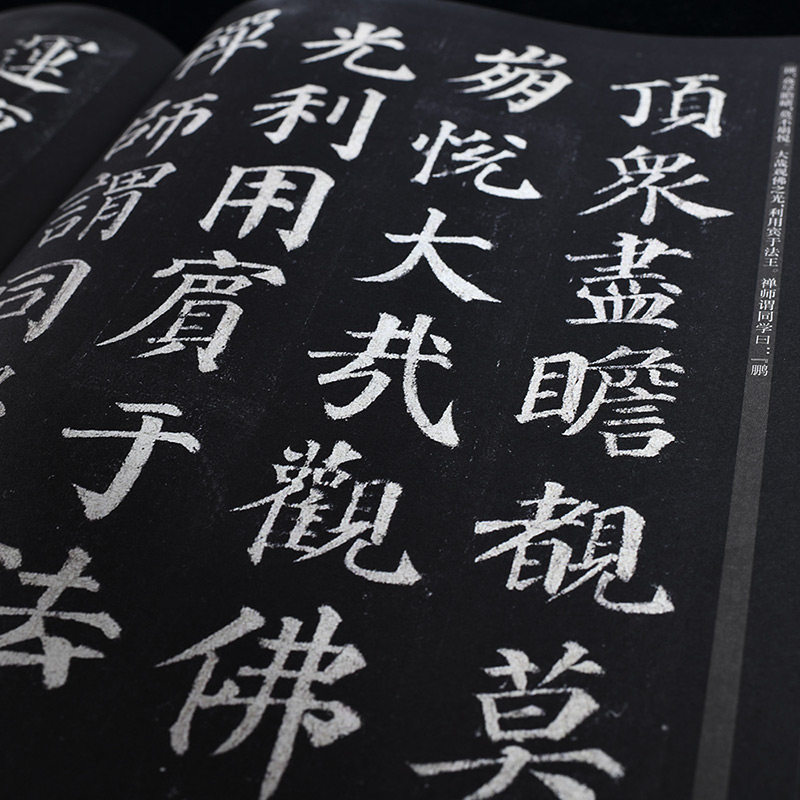 顶,众尽瞻睹,莫不崩悦。大哉观佛之光,利用宾于法王。禅师谓同学曰:『鹏
頂衆盡瞻覩莫
崩悅大哉觀佛
光利用賓于法
禪師謂同
運